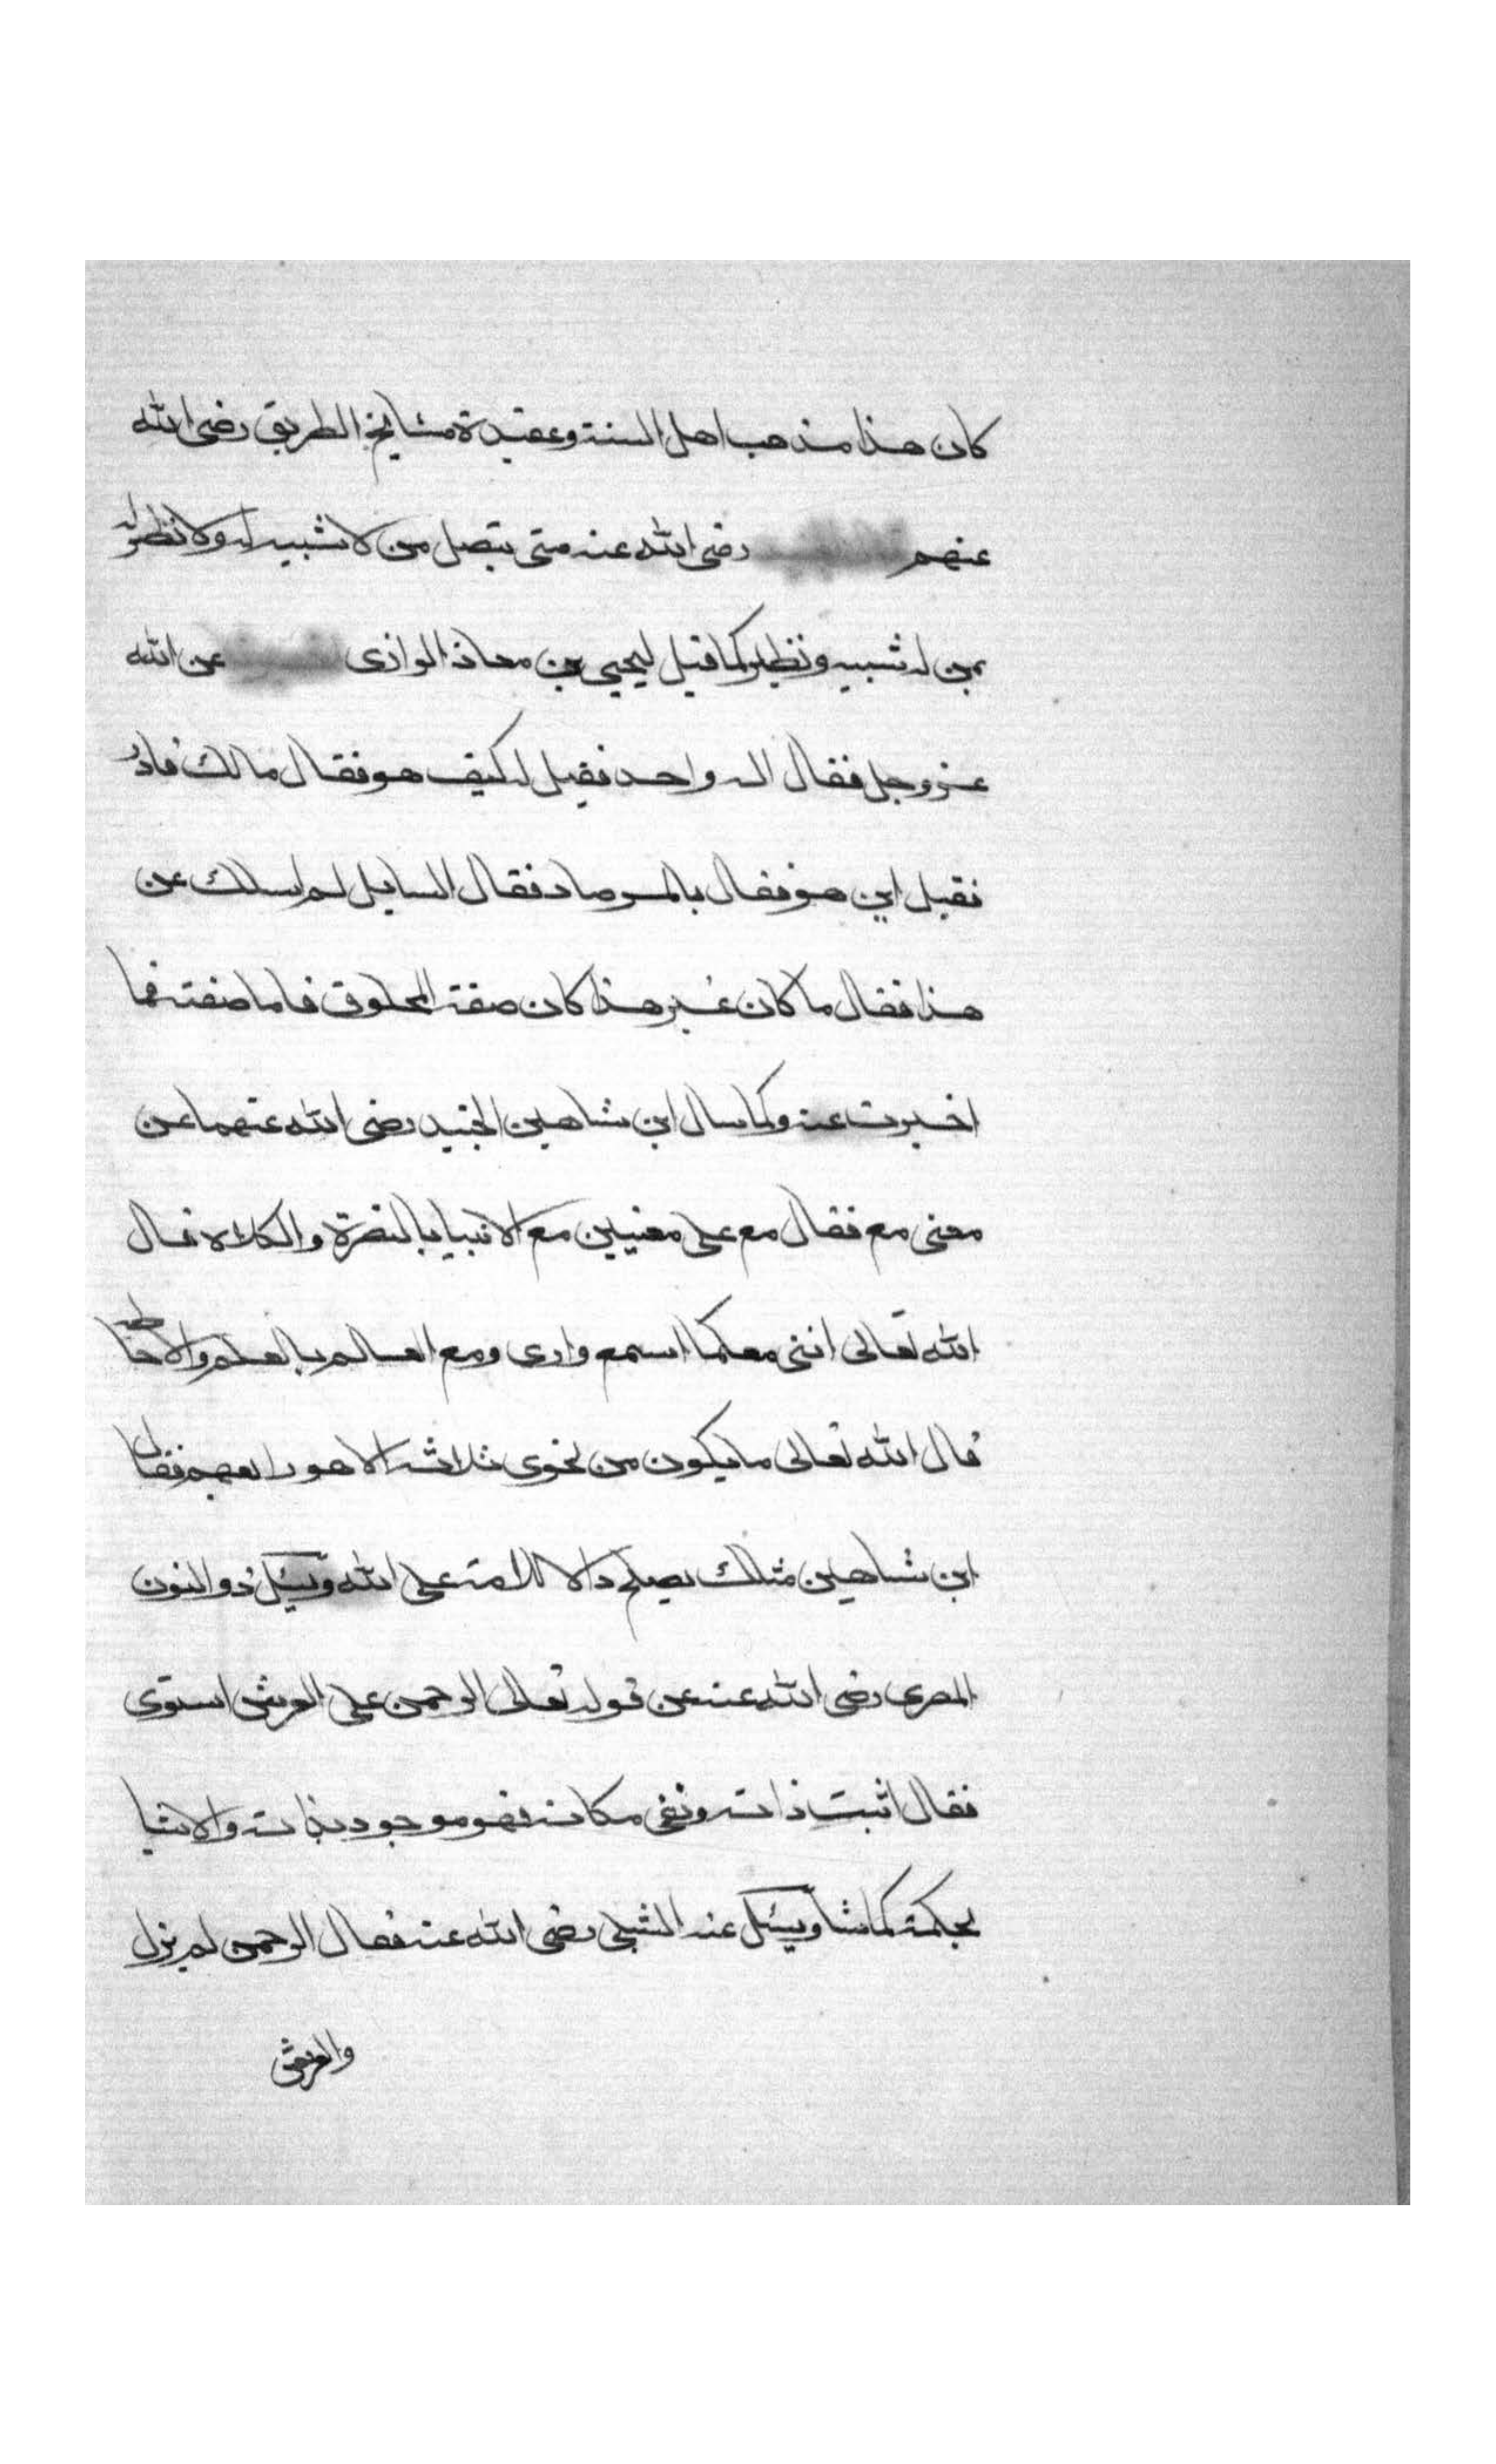 كان هذا مذهب اهل السنة وعقيدة مشايخ الطريق رضي الله
عنهم رضي الله عنه متى يتصل من لا شبيه له ولا نظير له
بمن له شبيه ونظير وكما قيل ليحيى بن معاذ الرازى عن الله
عز وجل فقال اله واحد فقيل له كيف هو فقال مالك قادر
فقيل اين هو فقال بالمرصاد فقال السايل لم اسلك عن
هذا فقال ما كان غير هذا كان صفة المخلوق فاما صفته فما
اخبرت عنه وكما سال ابن شاهين الجنيد رضى الله عنهما عن
معنى مع فقال مع على معنيين مع الانبيا بالنصرة والكلاة قال
الله تعالى انني معكما اسمع وارى ومع العالم بالعلم والاحاطة
قال الله تعالى ما يكون من نجوى ثلاثة الا هو رابعهم فقال
ابن شاهين مثلك يصلح دالا للامة على الله وسيل ذو النون
المصرى رضى الله عنه عن قوله تعالى الرحمن على العرش استوى
فقال اثبت ذاته ونفى مكانه فهو موجود بذاته والاشيا
بحكمة كما شا وسيل عنه الشبلى رضى الله عنه فقال الرحمن لم يزل
والعرش